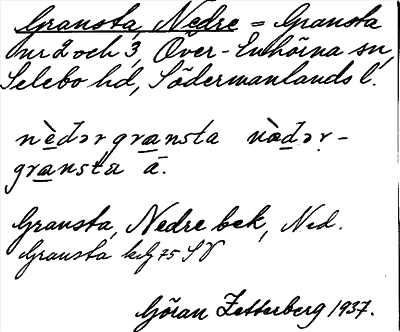 Gransta, Nedre = Gransta
nr 2 och 3, Över-Enhörna sn,
Selebo hd, Södermanlands l.
nèdər gransta nædər-
gransta ā.
Gransta, Nedre bek, Ned.
Gransta kg 75 SV
Göran Zetterberg 1937.